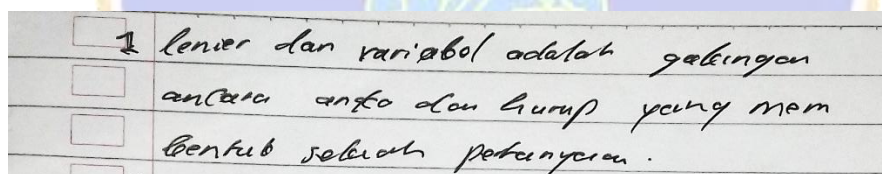 1 lenier dan variabol adalah gabungan
antara angka dan hurup yang mem
bentuk sebuah pertanyaan.